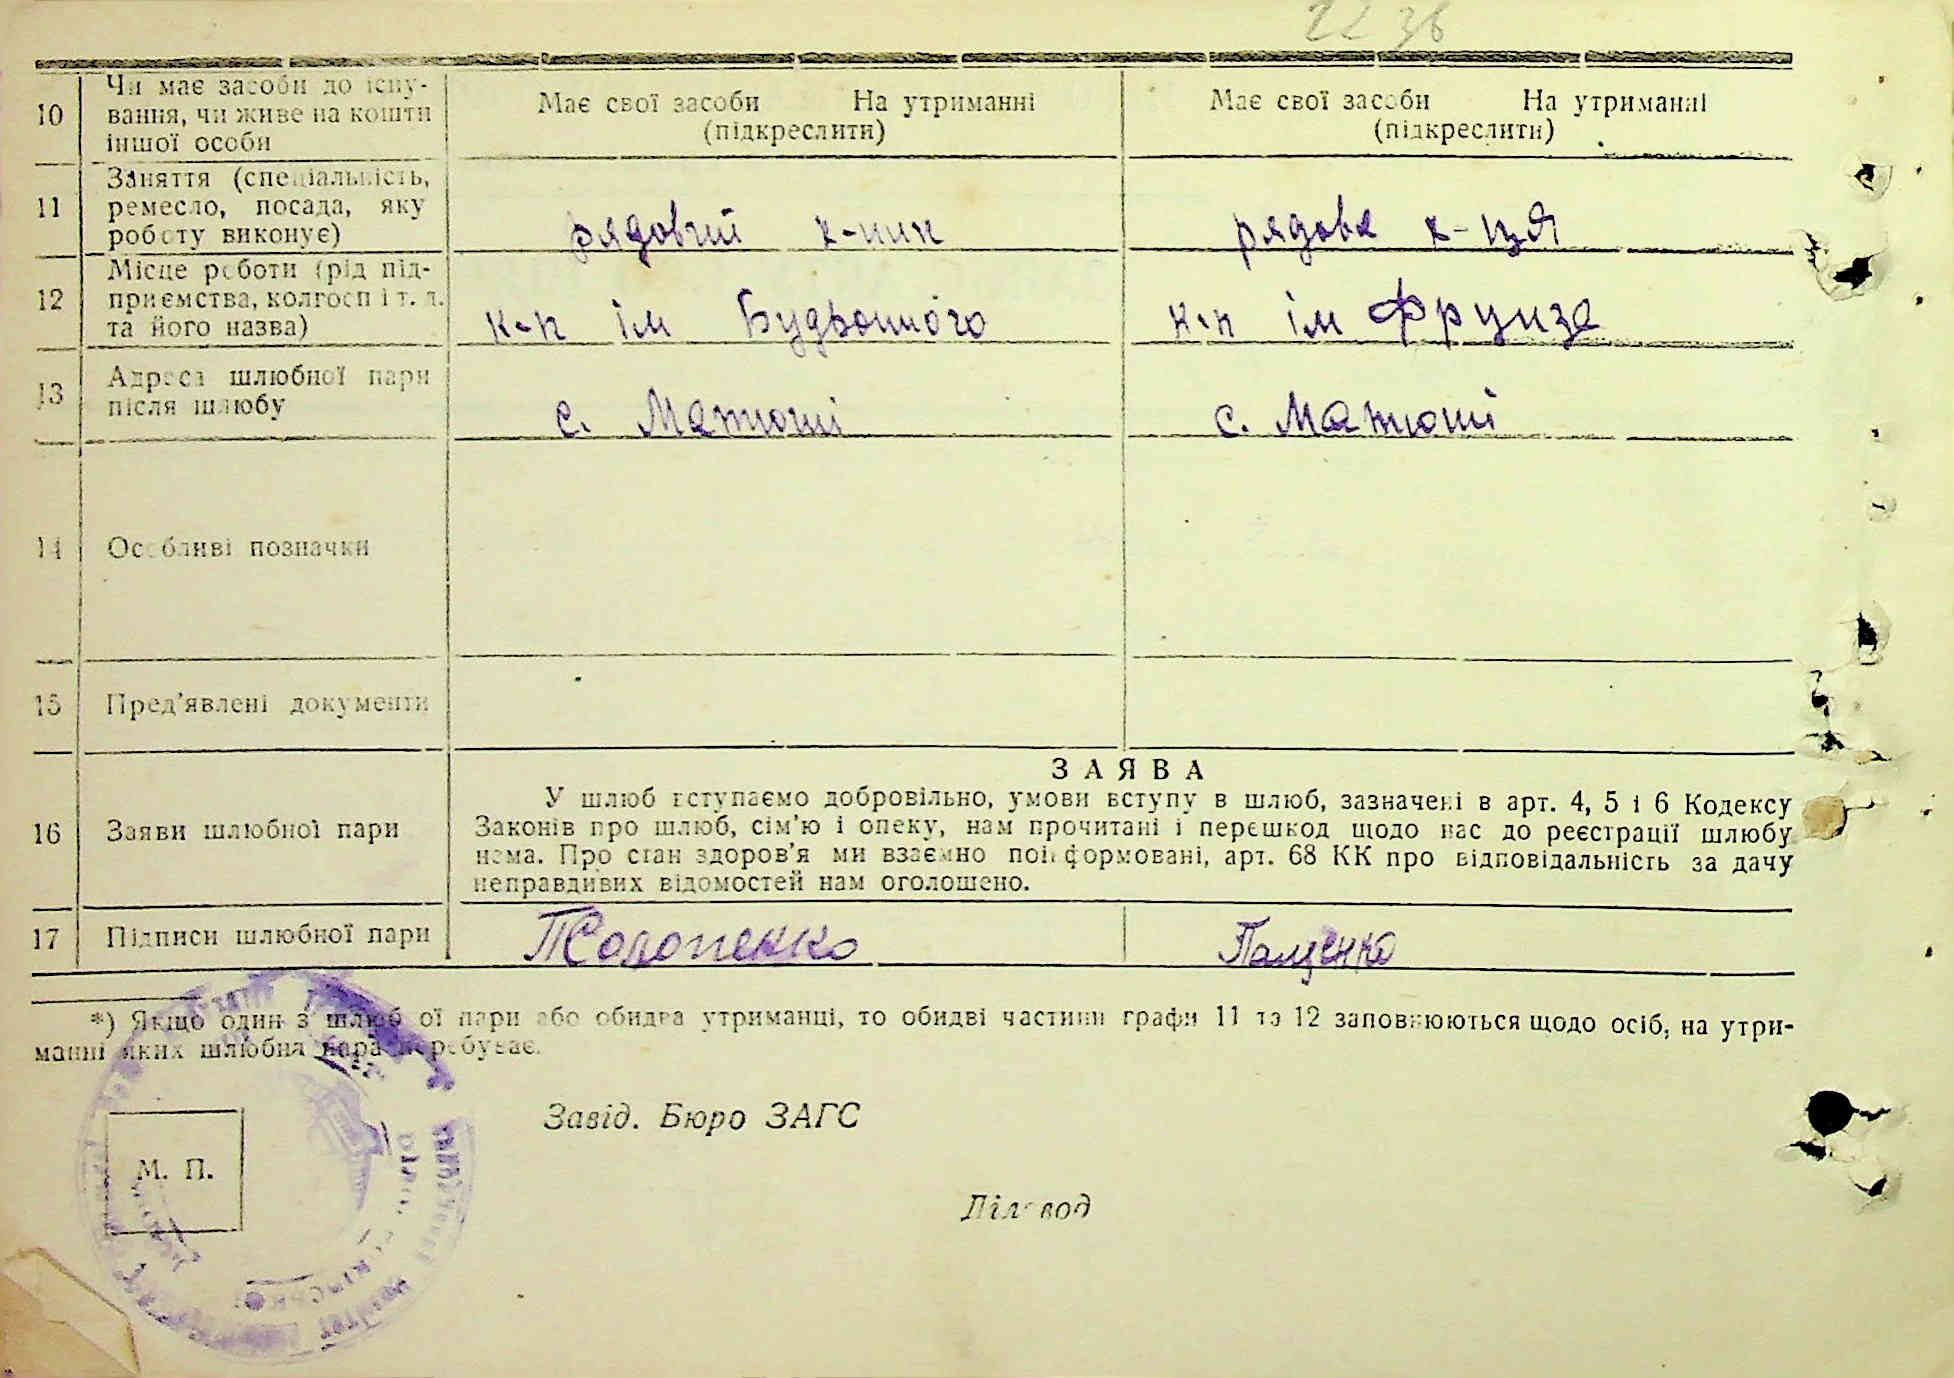 22 36
10 Чи має засоби до існу-
вання, чи живе на кошти
іншої особи
Має свої засоби На утриманні
(підкреслити)
Має свої засоби На утриманні
(підкреслити)
11 Заняття (спеціальність,
ремесло, посада, яку
роботу виконує)
рядовий к-ник
рядова к-ця
12 Місце роботи (рід під-
приємства, колгосп і т. д.
та його назва)
к-п ім Будьонного
к-п ім Фрунзе
13 Адреса шлюбної пари
після шлюбу
с. Матюші
с. Матюші
14 Особливі позначки
15 Пред'явлені документи
16 Заяви шлюбної пари
ЗАЯВА
У шлюб вступаємо добровільно, умови вступу в шлюб, зазначені в арт. 4, 5 і 6 Кодексу
Законів про шлюб, сім'ю і опеку, нам прочитані і перешкод щодо нас до реєстрації шлюбу
нема. Про стан здоров'я ми взаємно поінформовані, арт. 68 КК про відповідальність за дачу
неправдивих відомостей нам оголошено.
17 Підписи шлюбної пари
Пащенко
*) Якщо один з шлюбної пари або обидва утриманці, то обидві частини графи 11 та 12 заповнюються щодо осіб, на утри-
манні яких шлюбна пара перебуває.
Завід. Бюро ЗАГС
М. П.
Діловод